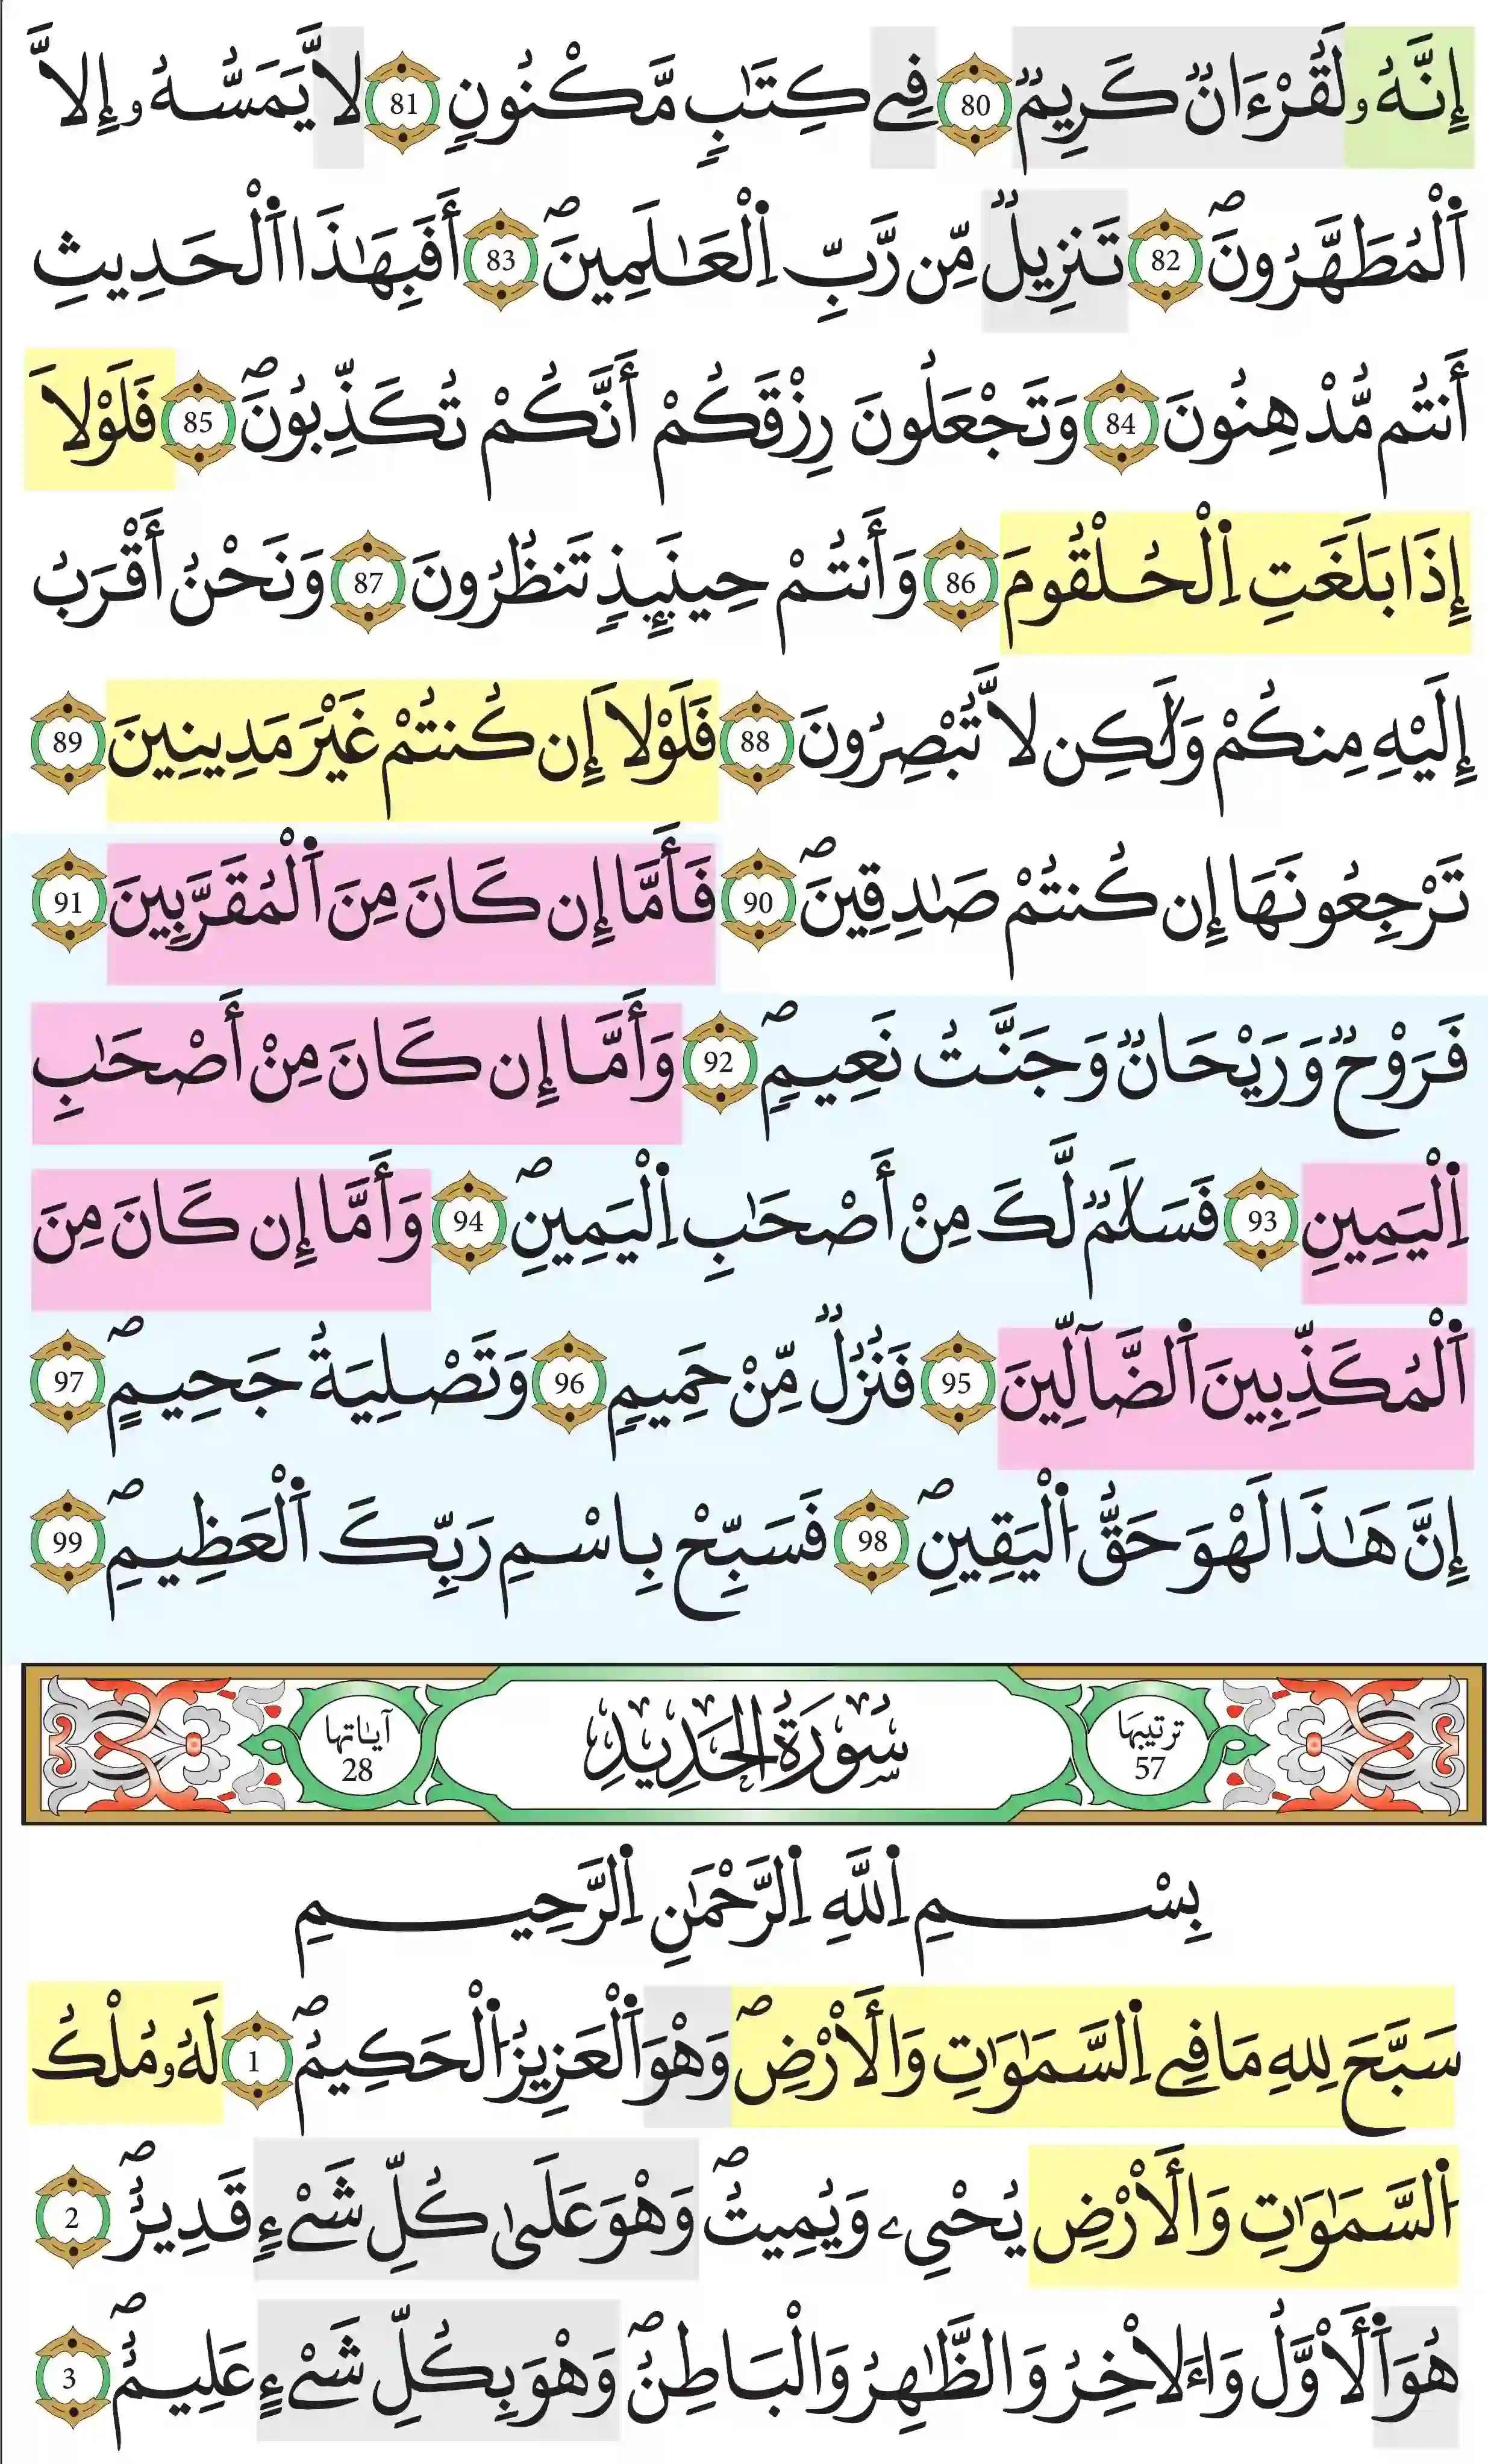 إِنَّهُۥ لَقُرْءَانٌ كَرِيمٌ 80 فِے كِتَٰبٍ مَّكْنُونٍ 81 لَا يَمَسُّهُۥ إِلَّا
اَ۬لْمُطَهَّرُونَۖ 82 تَنزِيلٌ مِّن رَّبِّ اِ۬لْعَٰلَمِينَۖ 83 أَفَبِهَٰذَا اَ۬لْحَدِيثِ
أَنتُم مُّدْهِنُونَ 84 وَتَجْعَلُونَ رِزْقَكُمْ أَنَّكُمْ تُكَذِّبُونَۖ 85 فَلَوْلَا
إِذَا بَلَغَتِ اِ۬لْحُلْقُومَ 86 وَأَنتُمْ حِينَئِذٍ تَنظُرُونَ 87 وَنَحْنُ أَقْرَبُ
إِلَيْهِ مِنكُمْ وَلَٰكِن لَّا تُبْصِرُونَ 88 فَلَوْلَا إِن كُنتُمْ غَيْرَ مَدِينِينَ 89
تَرْجِعُونَهَا إِن كُنتُمْ صَٰدِقِينَۖ 90 فَأَمَّا إِن كَانَ مِنَ اَ۬لْمُقَرَّبِينَ 91
فَرَوْحٌ وَرَيْحَانٌ وَجَنَّتُ نَعِيمٍۖ 92 وَأَمَّا إِن كَانَ مِنْ أَصْحَٰبِ
اِ۬لْيَمِينِ 93 فَسَلَٰمٌ لَّكَ مِنْ أَصْحَٰبِ اِ۬لْيَمِينِۖ 94 وَأَمَّا إِن كَانَ مِنَ
اَ۬لْمُكَذِّبِينَ اَ۬لضَّآلِّينَ 95 فَنُزُلٌ مِّنْ حَمِيمٍ 96 وَتَصْلِيَةُ جَحِيمٍۖ 97
إِنَّ هَٰذَا لَهْوَ حَقُّ اُ۬لْيَقِينِۖ 98 فَسَبِّحْ بِاسْمِ رَبِّكَ اَ۬لْعَظِيمِۖ 99
ترتيبها 57
سُورَةُ الْحَدِيدِ
آياتها 28
بِسْمِ اِ۬للَّهِ اِ۬لرَّحْمَٰنِ اِ۬لرَّحِيمِ
سَبَّحَ لِلهِ مَا فِے اِ۬لسَّمَٰوَٰتِ وَالْأَرْضِۖ وَهْوَ اَ۬لْعَزِيزُ اُ۬لْحَكِيمُۖ 1 لَهُۥ مُلْكُ
اُ۬لسَّمَٰوَٰتِ وَالْأَرْضِ يُحْيِۦ وَيُمِيتُۖ وَهْوَ عَلَىٰ كُلِّ شَےْءٍ قَدِيرٌۖ 2
هُوَ اَ۬لْأَوَّلُ وَاءَلَاخِرُ وَالظَّٰهِرُ وَالْبَاطِنُۖ وَهْوَ بِكُلِّ شَےْءٍ عَلِيمٌۖ 3